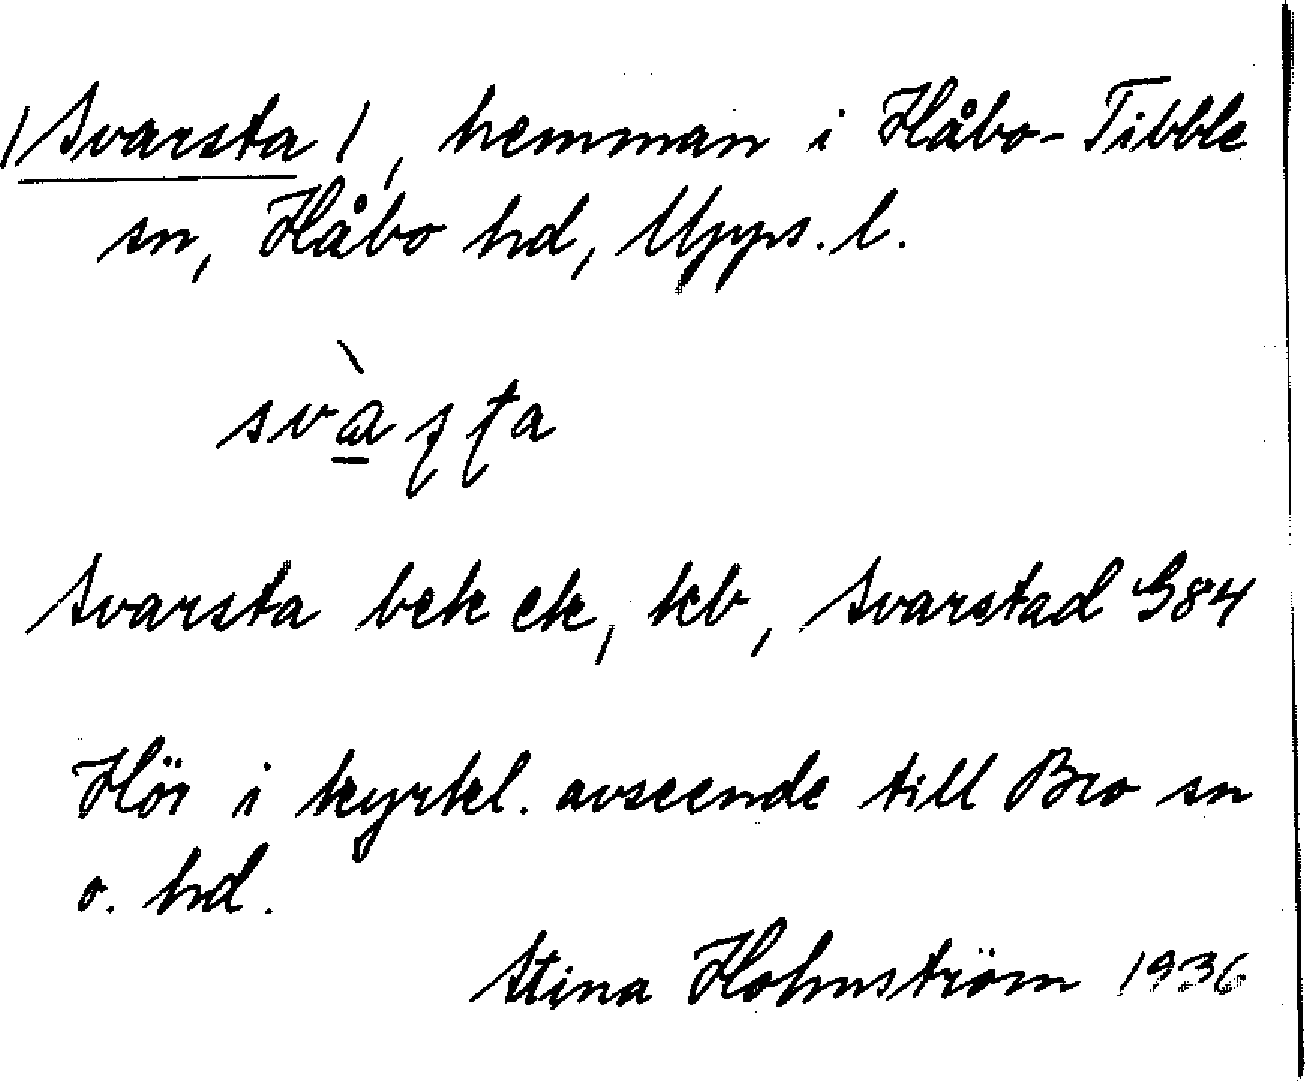 /Svarsta/, hemman i Håbo-Tibble
sn, Håbo hd, Upps. l.
Svarsta bek ek, kb, Svarstad G84
Hör i kyrkl. avseende till Bro sn
o. hd.
Stina Hohnström 1936